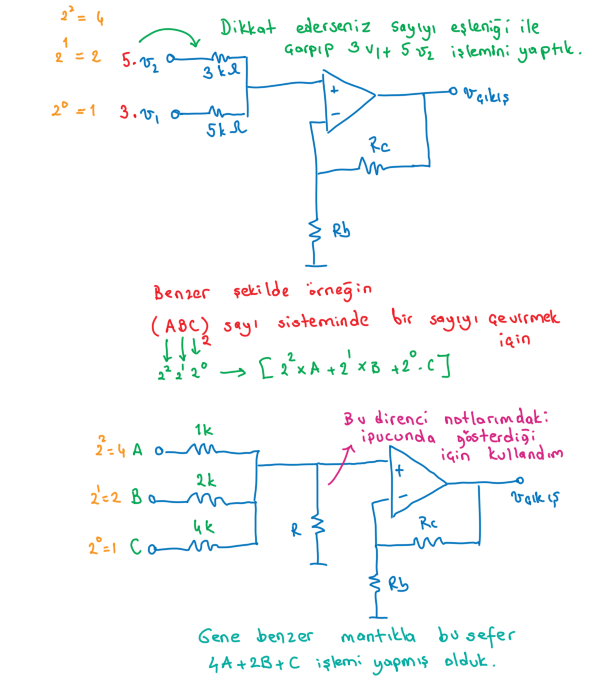 2² = 4
Dikkat ederseniz sayıyı eşleniği ile
çarpıp 3v₁+ 5v₂ işlemini yaptık.
2¹ = 2 5.v₂
3kΩ
2⁰ = 1 3.v₁
5kΩ
+
-
Vçıkış
Rc
Rb
Benzer şekilde örneğin
(ABC)₂ sayı sisteminde bir sayıyı çevirmek
için
2² 2¹ 2⁰ → [2²xA + 2¹xB + 2⁰.C]
Bu direnci notlarımdaki
ipucunda gösterdiği
için kullandım
1k
2²=4 A
2k
2¹=2 B
4k
2⁰=1 C
R
+
-
Vçıkış
Rc
Rb
Gene benzer mantıkla bu sefer
4A+2B+C işlemi yapmış olduk.